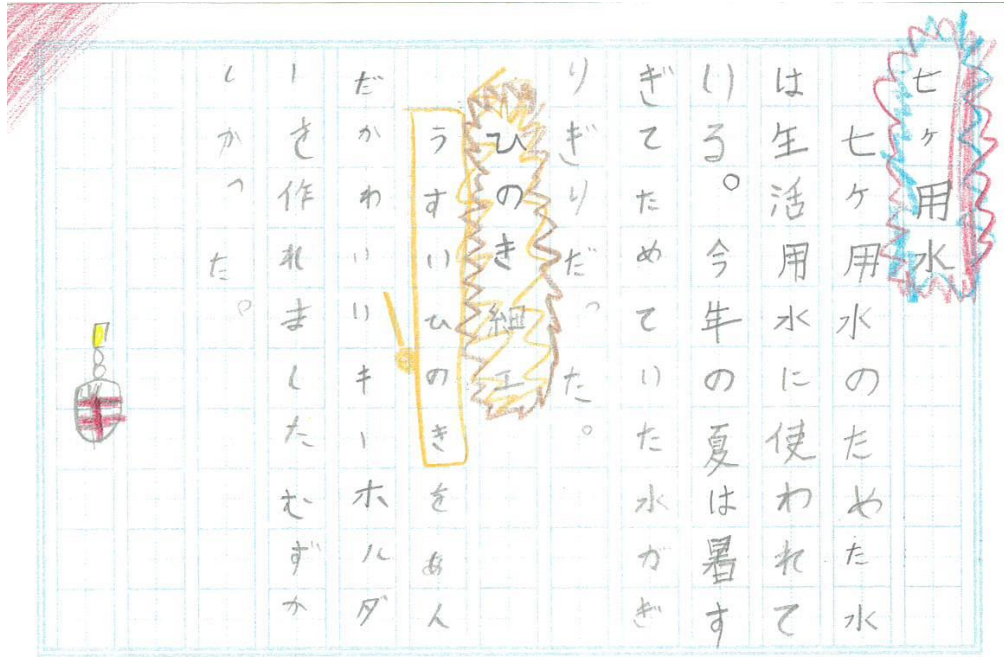 七ヶ用水
七ケ用水のためた水
は生活用水に使われて
いる。今年の夏は暑す
ぎてためていた水がぎ
りぎりだった。
ひのき細工
うすいひのきをあん
だかわいいキーホルダ
ーを作れましたむずか
しかった。